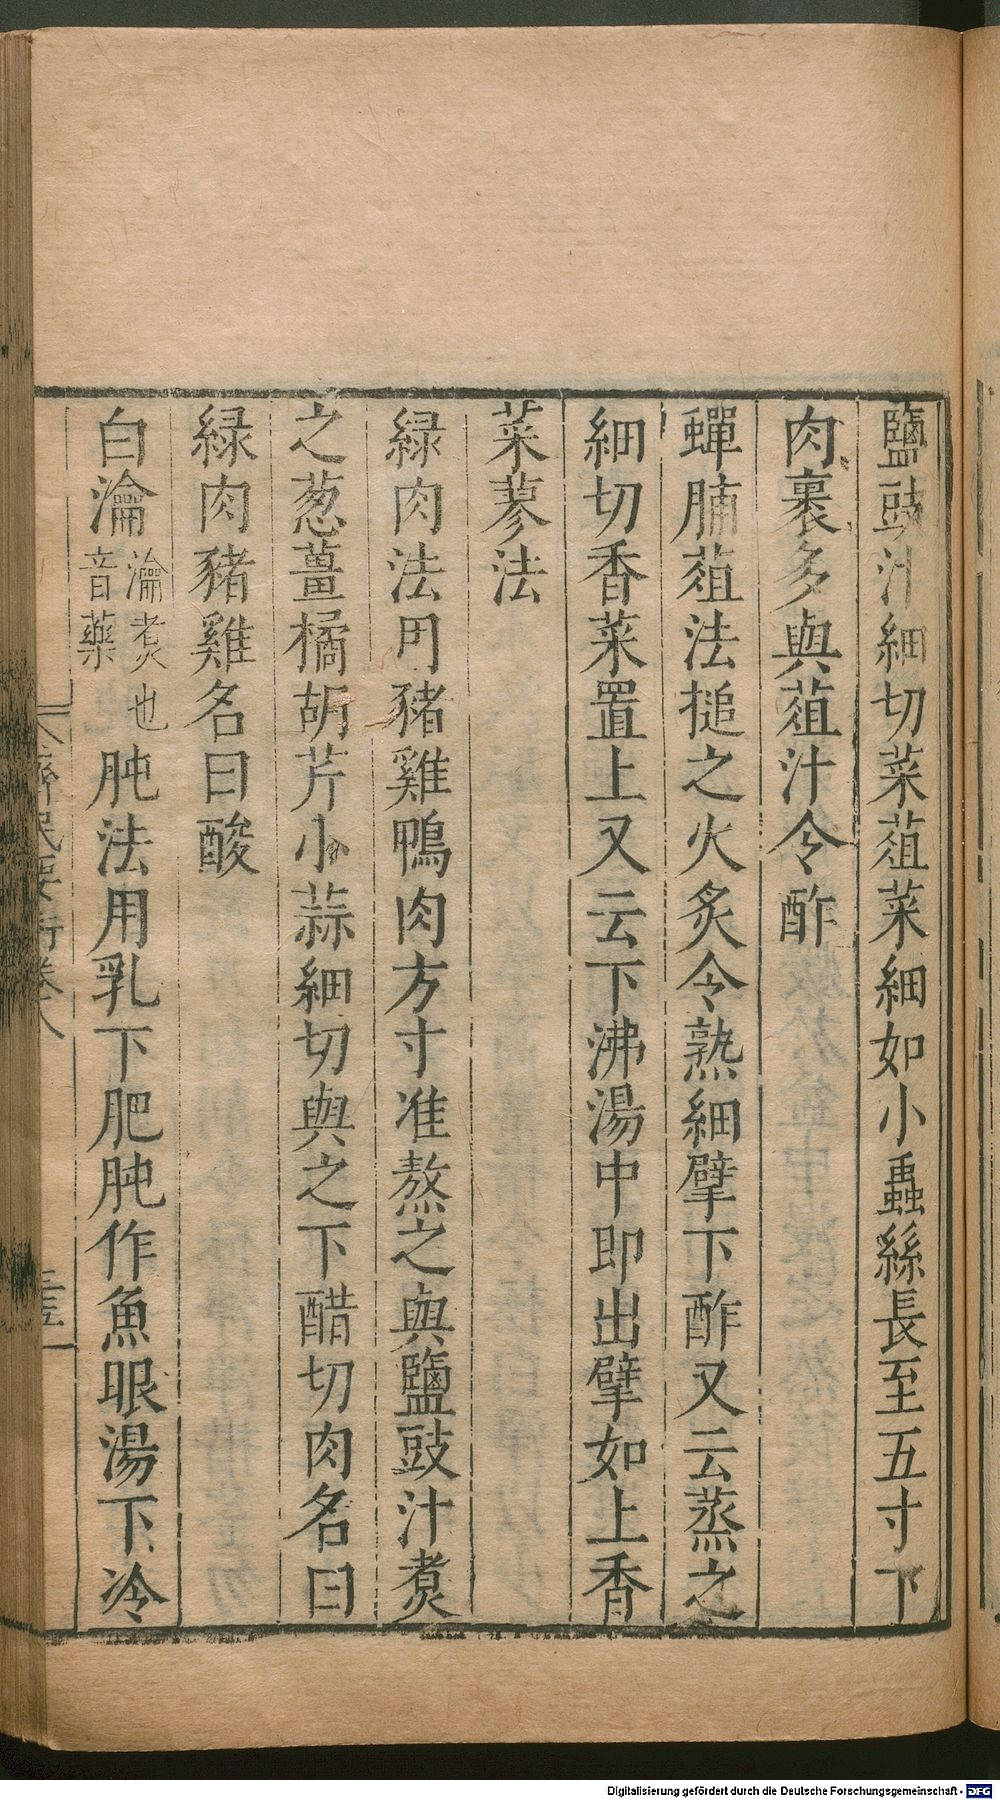 鹽豉汁細切菜葅菜細如小蟲絲長至五寸下
肉裹多與葅汁令酢
蟬脯葅法搥之火炙令熟細擘下酢又云蒸之
細切香菜置上又云下沸湯中即出擘如上香
菜蓼法
緑肉法用豬雞鴨肉方寸准熬之與鹽豉汁煮
之葱薑橘胡芹小蒜細切與之下醋切肉名曰
緑肉豬雞名曰酸
白瀹瀹煮也音藥肫法用乳下肥肫作魚眼湯下冷
齊民要術卷八
Digitalisierung gefördert durch die Deutsche Forschungsgemeinschaft - DFG